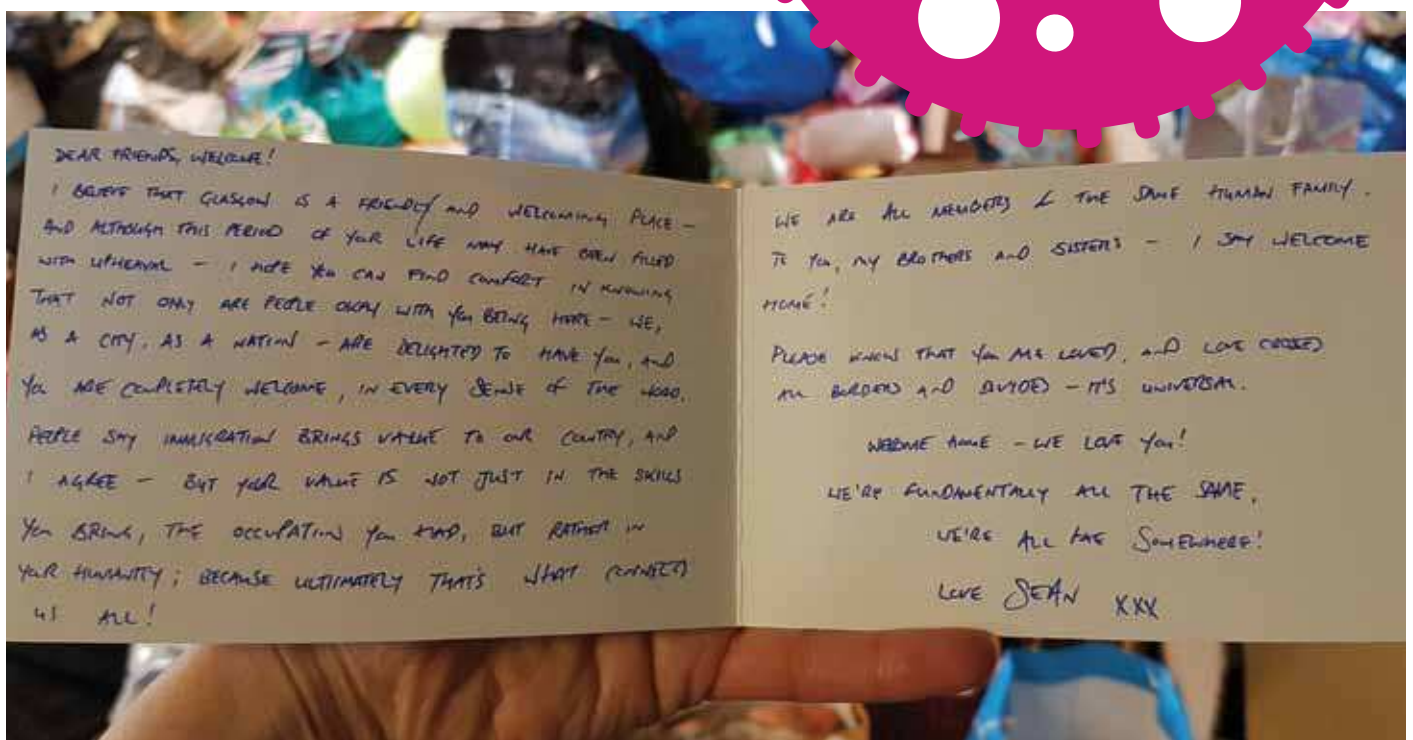 DEAR FRIENDS, WELCOME!
I BELIEVE THAT GLASGOW IS A FRIENDLY AND WELCOMING PLACE –
AND ALTHOUGH THIS PERIOD OF YOUR LIFE MAY HAVE BEEN FILLED
WITH UPHEAVAL – I HOPE YOU CAN FIND COMFORT IN KNOWING
THAT NOT ONLY ARE PEOPLE OKAY WITH YOU BEING HERE – WE,
AS A CITY, AS A NATION – ARE DELIGHTED TO HAVE YOU, AND
YOU ARE COMPLETELY WELCOME, IN EVERY SENSE OF THE WORD.
PEOPLE SAY IMMIGRATION BRINGS VALUE TO OUR COUNTRY, AND
I AGREE – BUT YOUR VALUE IS NOT JUST IN THE SKILLS
YOU BRING, THE OCCUPATION YOU HAD, BUT RATHER IN
YOUR HUMANITY; BECAUSE ULTIMATELY THAT'S WHAT CONNECTS
US ALL!
WE ARE ALL MEMBERS OF THE SAME HUMAN FAMILY.
TO YOU, MY BROTHERS AND SISTERS – I SAY WELCOME
HOME!
PLEASE KNOW THAT YOU ARE LOVED, AND LOVE CROSSES
ALL BORDERS AND DIVIDES – IT'S UNIVERSAL.
WELCOME HOME – WE LOVE YOU!
WE'RE FUNDAMENTALLY ALL THE SAME,
WE'RE ALL FAE SOMEWHERE!
LOVE SEAN XXX